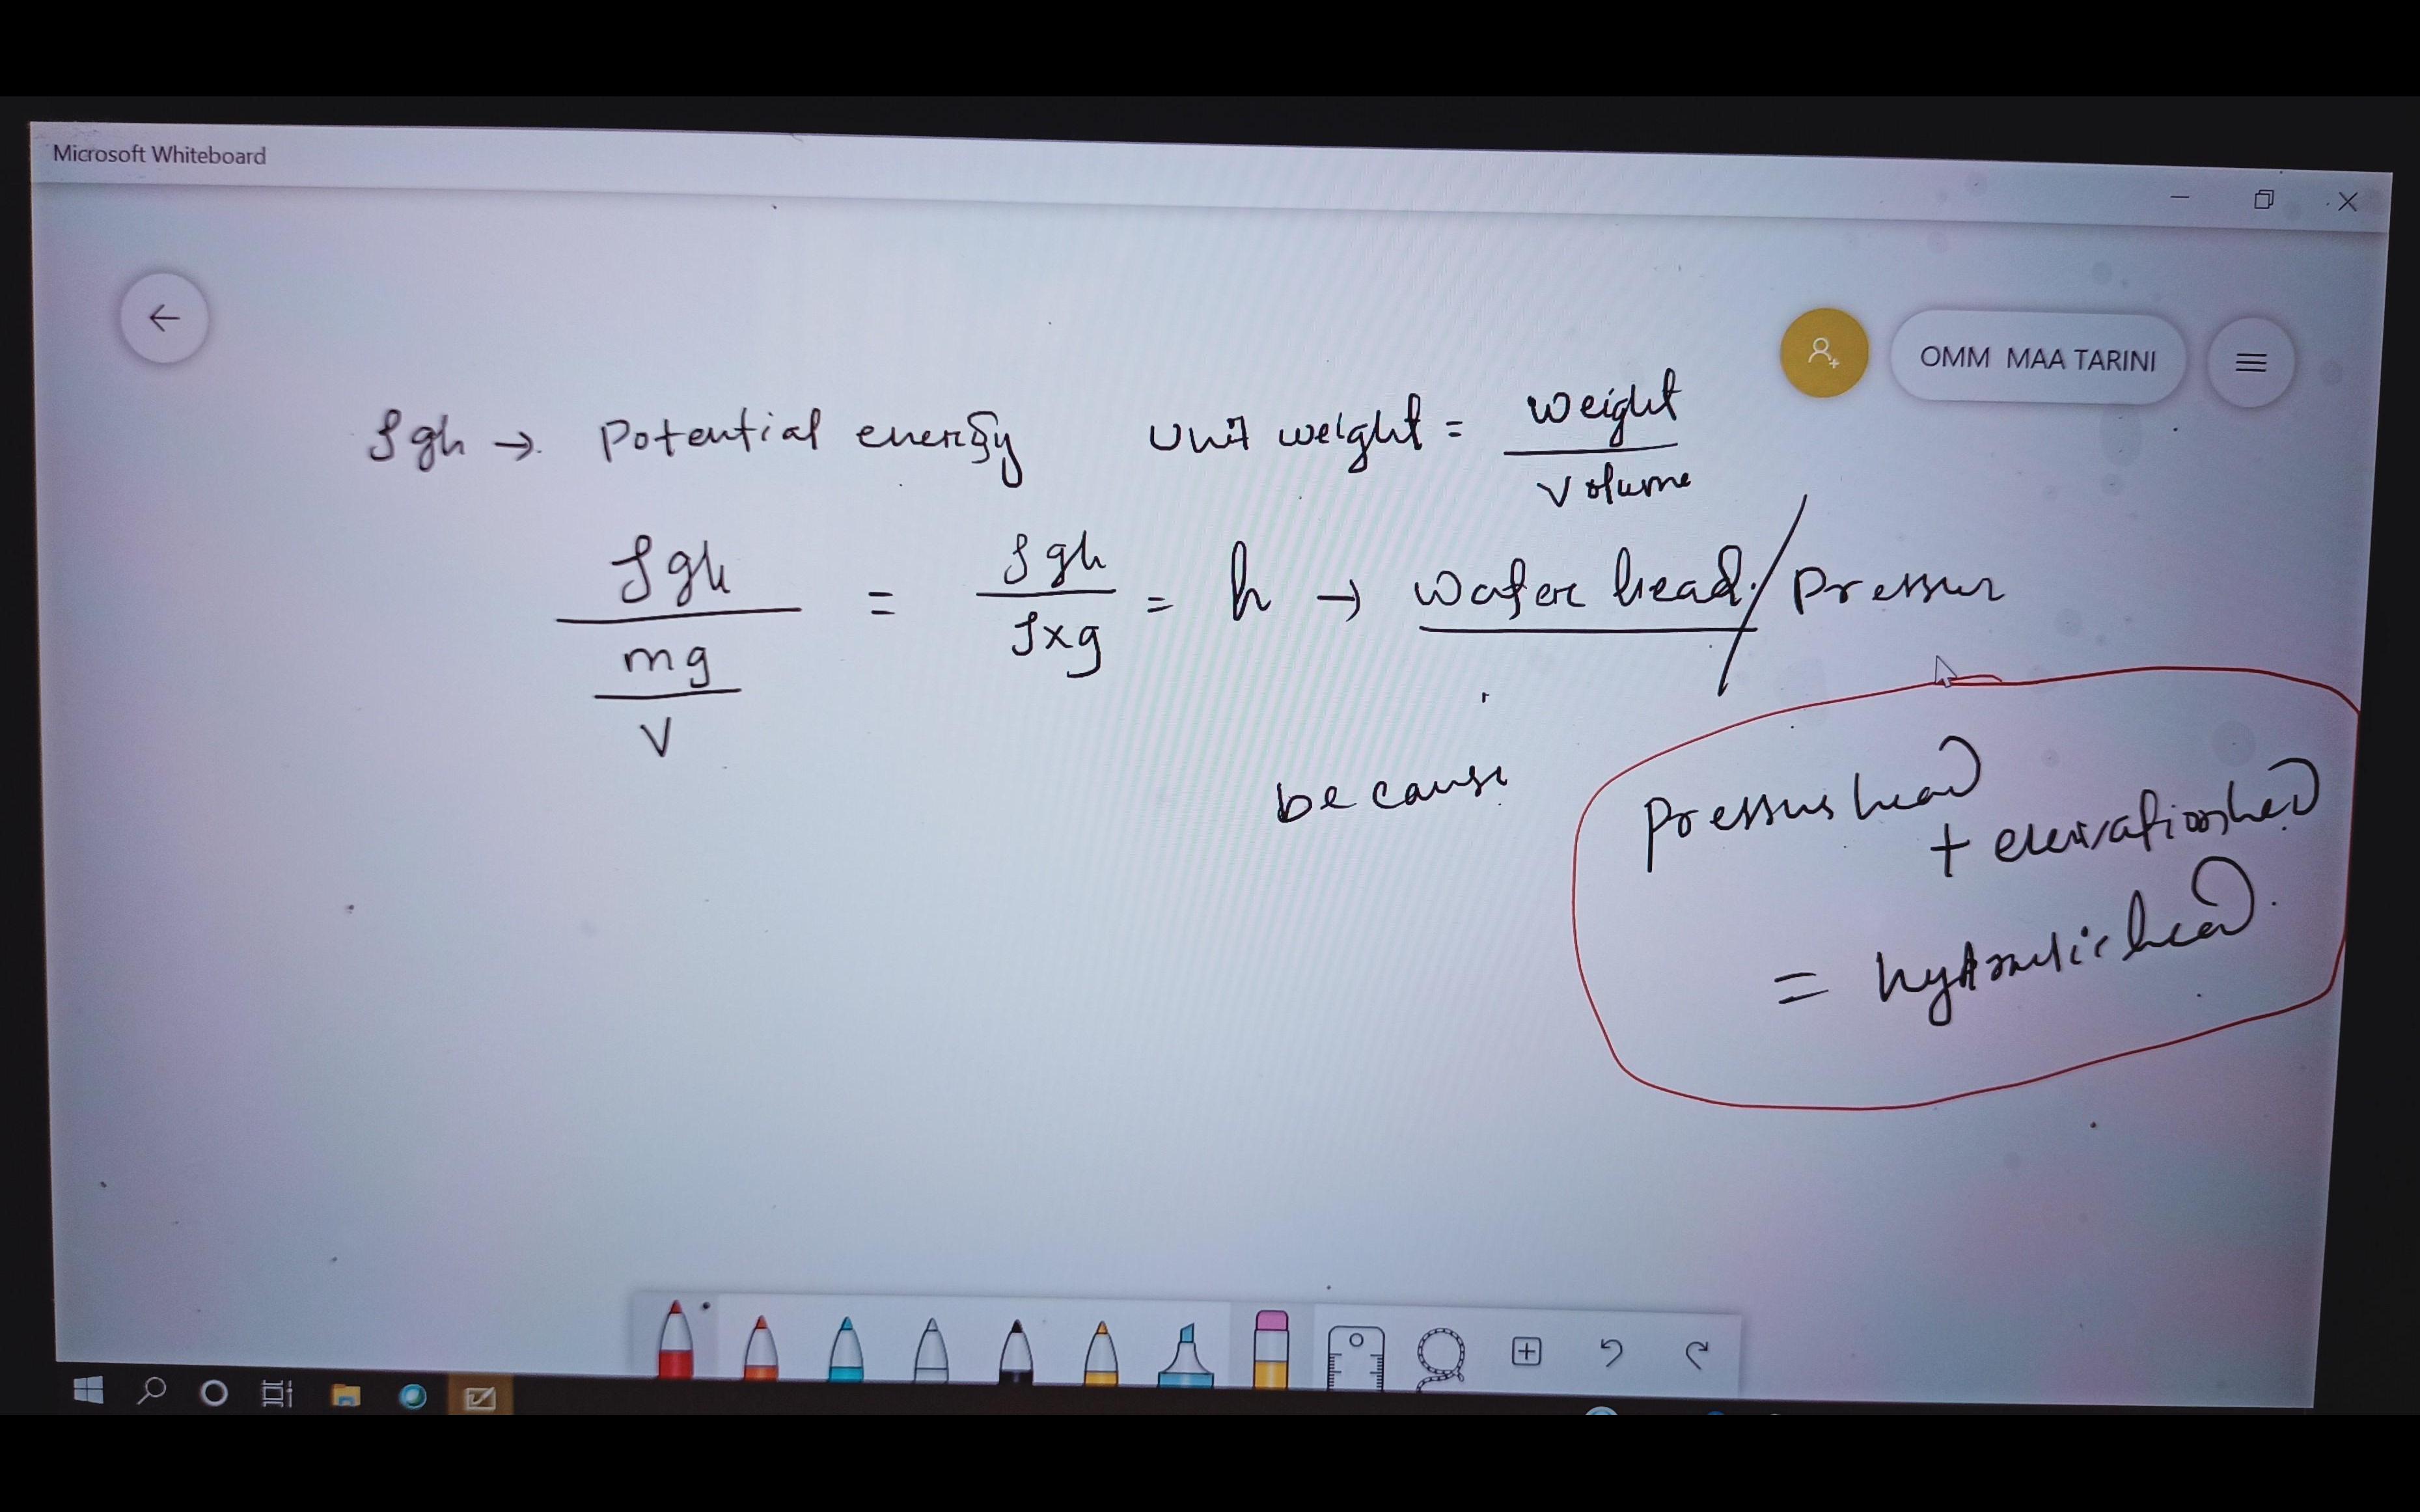 Microsoft Whiteboard
OMM MAA TARINI
ρgh → Potential energy
unit weight = weight / volume
ρgh / (mg / V) = ρgh / ρ×g = h → water head. / pressur
because
pressure head
+ elevation head
= hydraulic head.